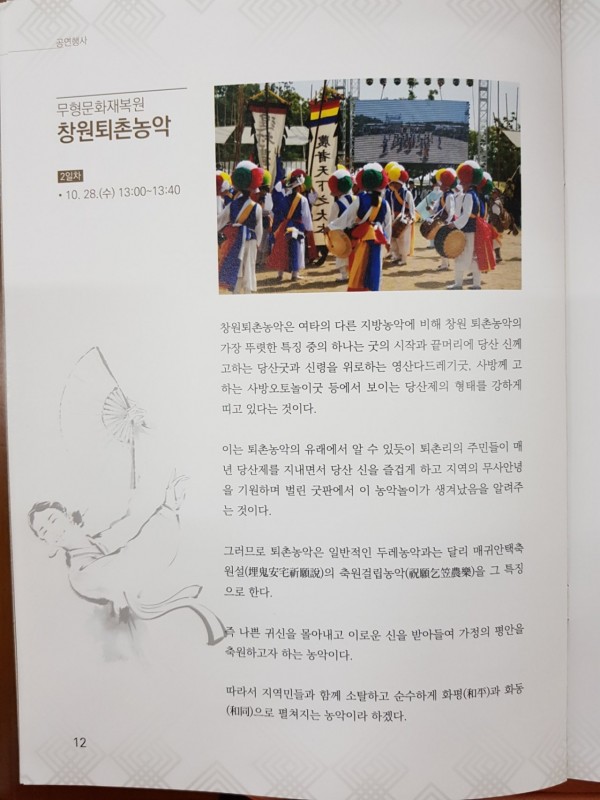 공연행사
무형문화재복원
창원퇴촌농악
2일차
• 10. 28.(수) 13:00~13:40
農者天下之大本
창원퇴촌농악은 여타의 다른 지방농악에 비해 창원 퇴촌농악의
가장 뚜렷한 특징 중의 하나는 굿의 시작과 끝머리에 당산 신께
고하는 당산굿과 신령을 위로하는 영산다드레기굿, 사방께 고
하는 사방오토놀이굿 등에서 보이는 당산제의 형태를 강하게
띠고 있다는 것이다.
이는 퇴촌농악의 유래에서 알 수 있듯이 퇴촌리의 주민들이 매
년 당산제를 지내면서 당산 신을 즐겁게 하고 지역의 무사안녕
을 기원하며 벌린 굿판에서 이 농악놀이가 생겨났음을 알려주
는 것이다.
그러므로 퇴촌농악은 일반적인 두레농악과는 달리 매귀안택축
원설(埋鬼安宅祈願說)의 축원걸립농악(祝願乞笠農樂)을 그 특징
으로 한다.
즉 나쁜 귀신을 몰아내고 이로운 신을 받아들여 가정의 평안을
축원하고자 하는 농악이다.
따라서 지역민들과 함께 소탈하고 순수하게 화평(和平)과 화동
(和同)으로 펼쳐지는 농악이라 하겠다.
12